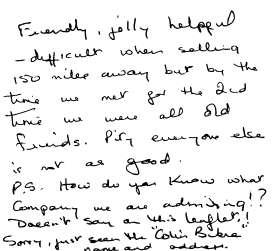 Friendly, jolly helpful
- difficult when selling
150 miles away but by the
time we met for the 2nd
time we were all old
friends. Pity everyone else
is not as good.
P.S. How do you know what
Company we are admiring!?
Doesn't say on this leaflet!!
Sorry, just seen the "Colin Bibra"
name and address.